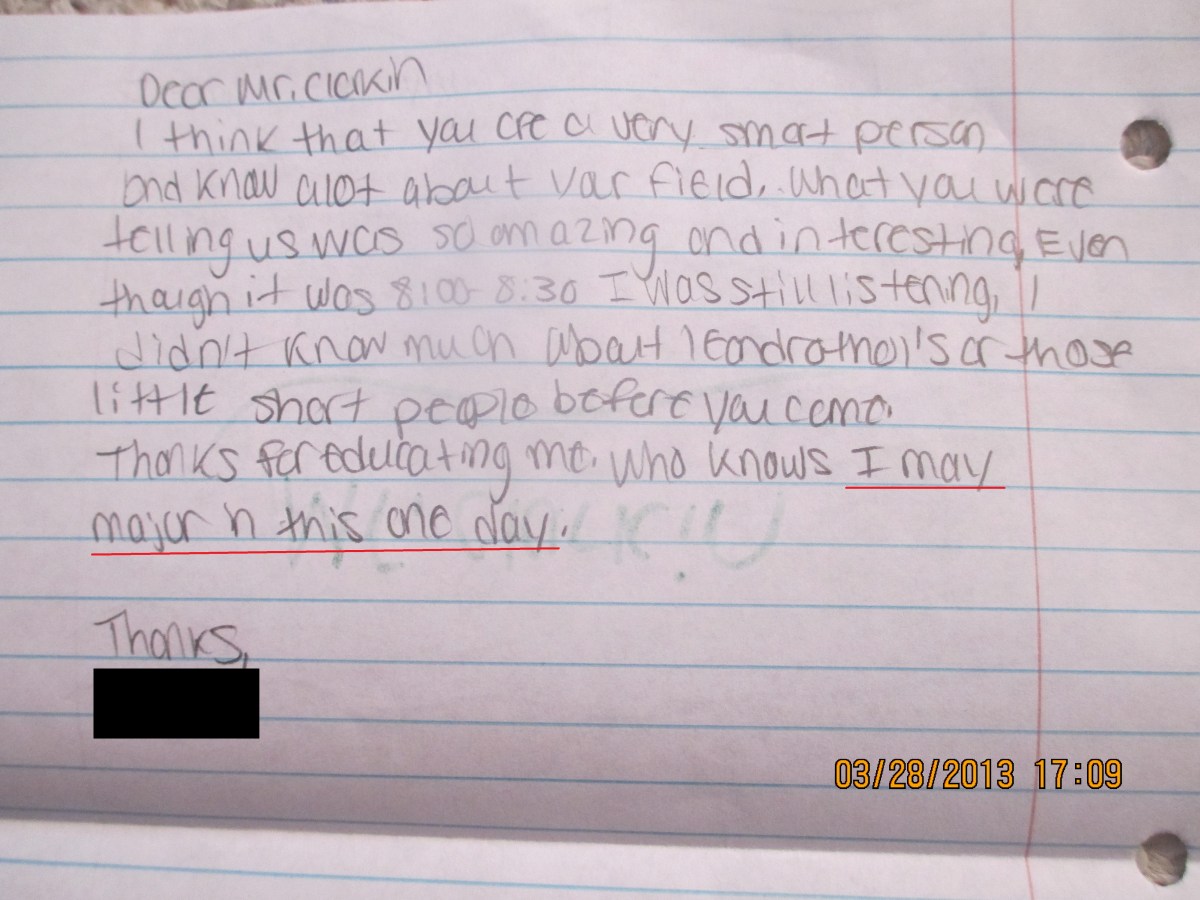 Dear Mr. Clarkin
I think that you are a very smart person
and know alot about your field. What you were
telling us was so amazing and interesting, Even
though it was 8:00-8:30 I was still listening, I
didn't know much about or those
little short people before you came.
Thanks for educating me. Who knows I may
major n this one day.
Thanks,
03/28/2013 17:09